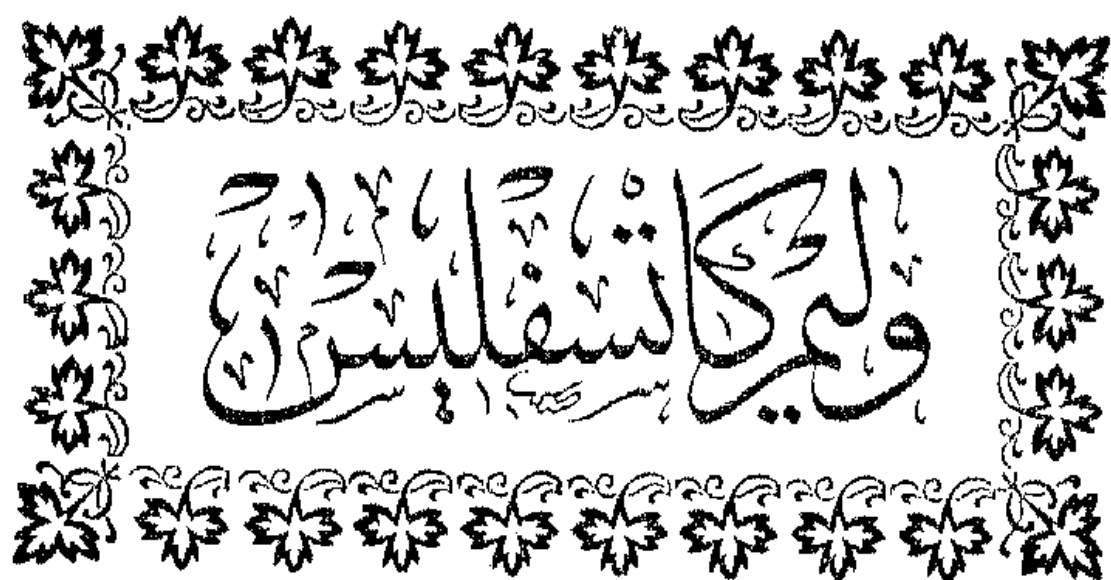 وليم كاتسفليس